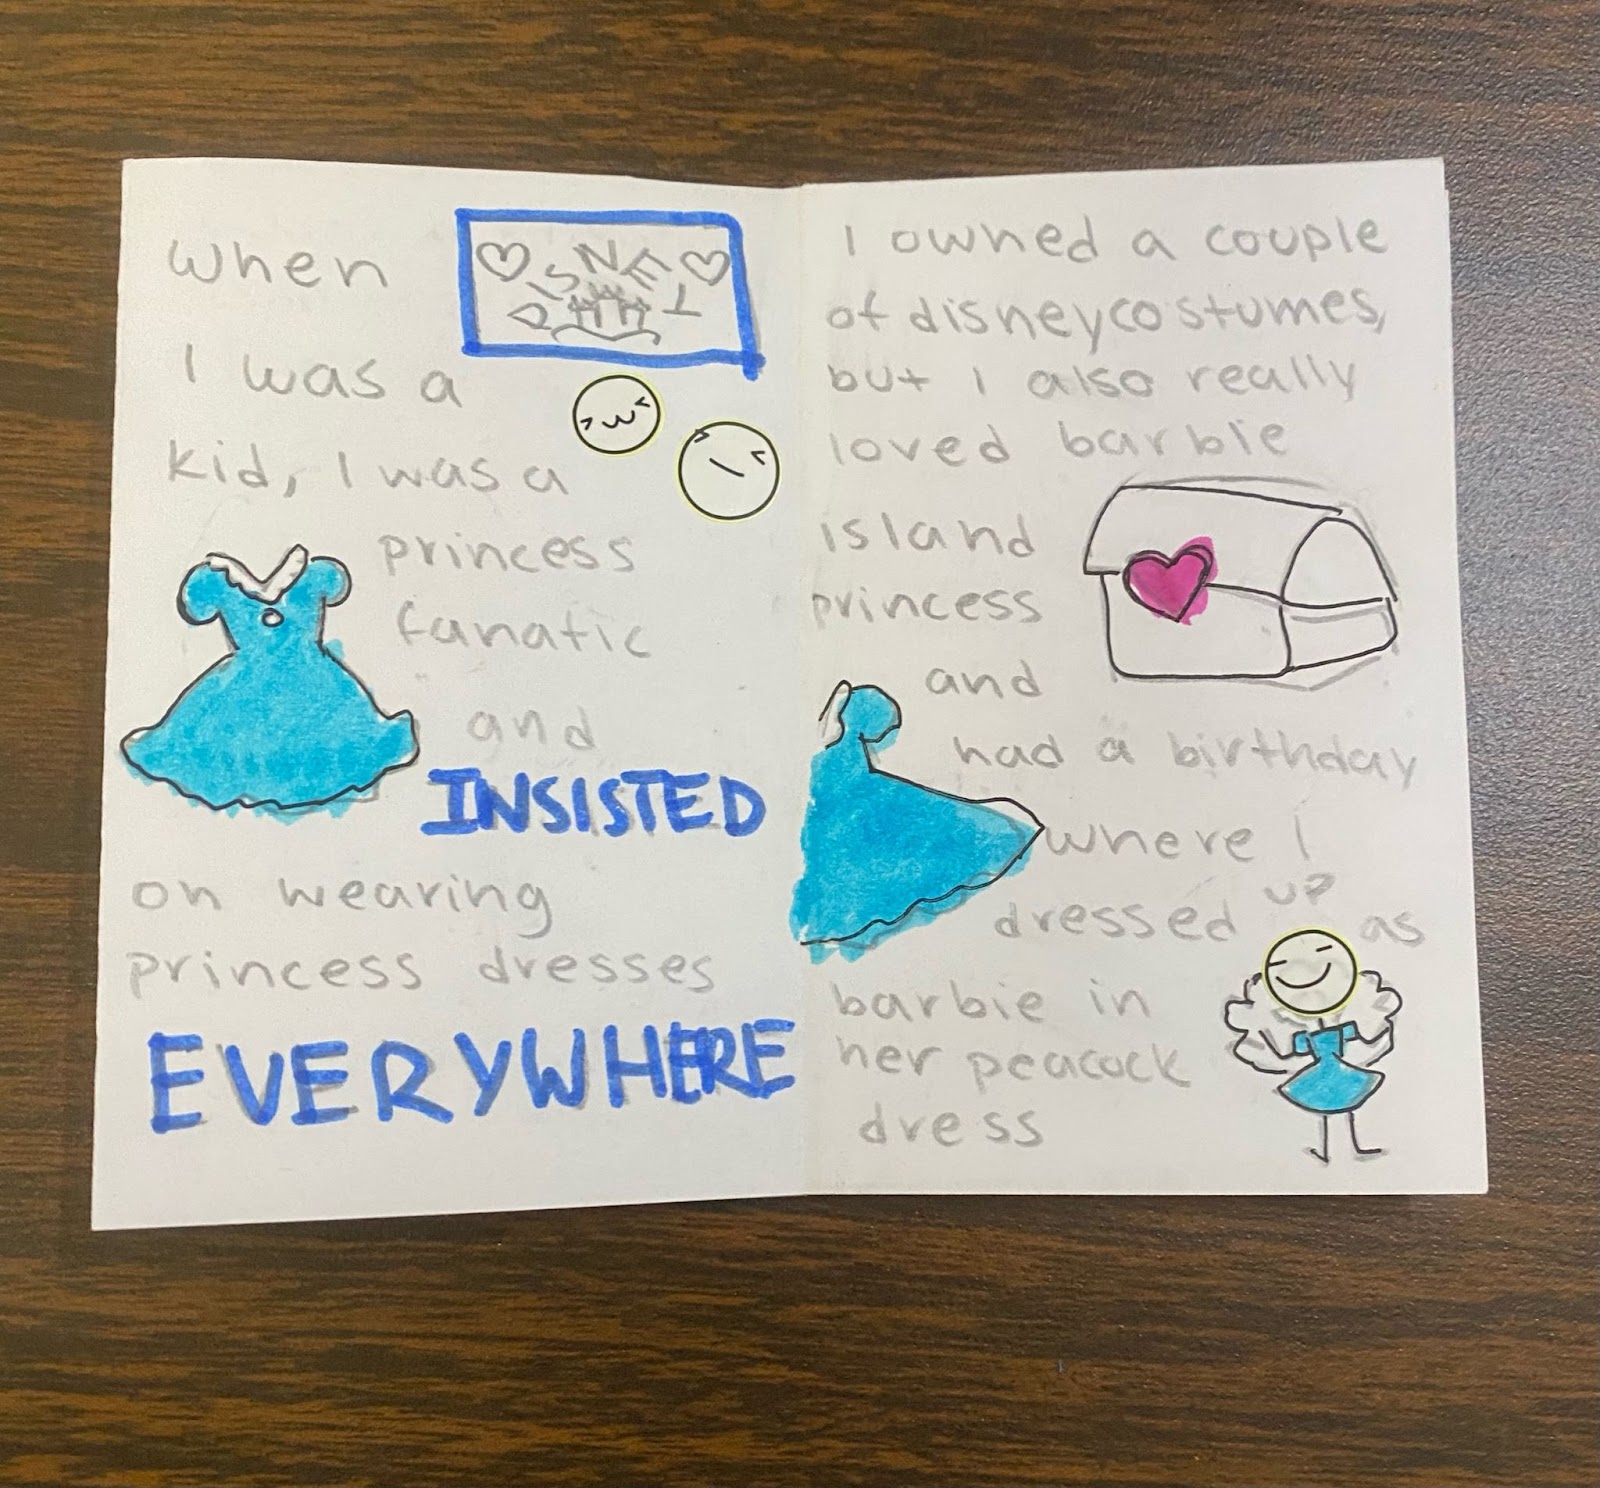 When
DISNEY
I was a
kid, I was a
princess
fanatic
and
INSISTED
on wearing
princess dresses
EVERYWHERE
I owned a couple
of disneycostumes,
but I also really
loved barbie
island
princess
and
had a birthday
where I
dressed up as
barbie in
her peacock
dress